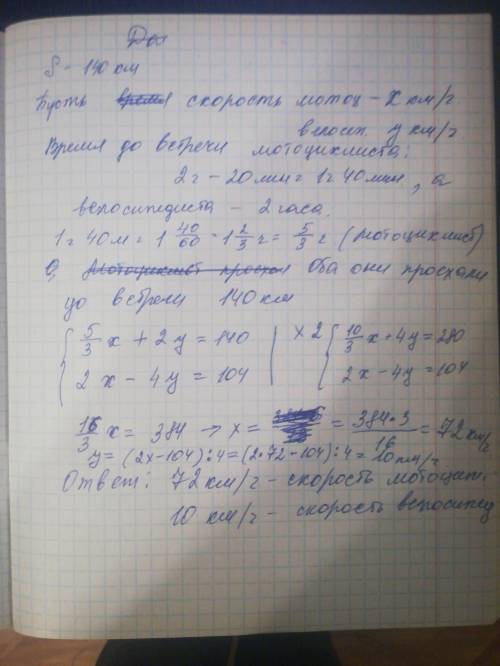 S - 140 км
Пусть время скорость мотоц - x км/г
велосип. y км/г
Время до встречи мотоциклиста:
2г - 20мин = 1г 40мин, а
велосипедиста - 2 часа.
1г 40м = 1 40/60 = 1 2/3 г = 5/3 г (мотоциклист)
О, Мотоциклист проехал Оба они проехали
до встречи 140 км
{ 5/3 x + 2y = 140 | × 2 { 10/3 x + 4y = 280
{ 2x - 4y = 104 { 2x - 4y = 104
16/3 x = 384 → x = = 384·3/16 = 72 км/г
y = (2x-104):4 = (2·72-104):4 = 10 км/г
Ответ: 72 км/г - скорость мотоцик.
10 км/г - скорость велосипед